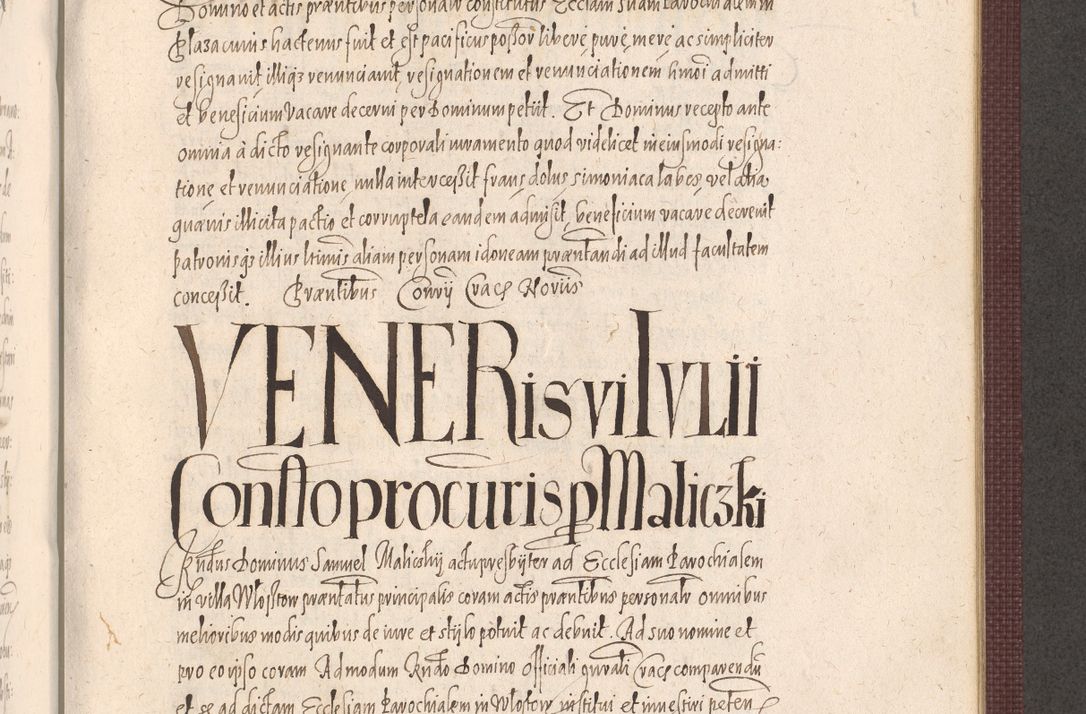 Domino et actis præntibus personalr constitutus Ecclam suam Parochialem in
Plaza cuius hactenus fuit et est pacificus possor liberè, purè, merè ac simpliciter
resignavit illiq3 renunciavit, resignationem et renunciationem hmoi admitti
et beneficium vacare decerni per Dominum petiit. Et Dominus recepto ante
omnia à dicto resignante corporali iuramento quod videlicet in eiusmodi resigna:
tione et renunciatione nulla intercessit fraus dolus simoniaca labes, vel alia
quævis illicita pactio et corruptela eandem admisit, beneficium vacare decrevit
patronisqs illius ltimis aliam personam idoneam præntandi ad illud facultatem
concessit. Præntibus Convij Crace Noviis
VENERis vi IVLII
Consto procuris p Maliczki
Rndus Dominus Samuel Maliczkij actu presbijter ad Ecclesiam Parochialem
in villa Wlostow præntatus principalis coram actis præntibus personalr omnibus
melioribus modis quibus de iure et stijlo potuit ac debuit. Ad suo nomine et
pro eo ipso coram Admodum Rndo Domino Officiali gnrali Crace comparendū
et se ad dictam Ecclesiam Parochialem in Wlostow institui et investiri peten